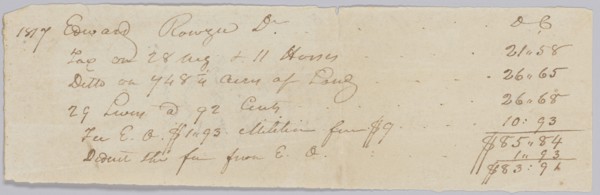 1817 Edward Rowzee Dr D. C
Tax on 28 neg & 11 Horses 21..58
Ditto on 748 acres of Land 26..65
29 Levies @ 92 Cents 26..68
Fee E. O. $1..93 Militia fine $9 10:93
$85..84
Deduct the fee from E. O. 1..93
$83:91